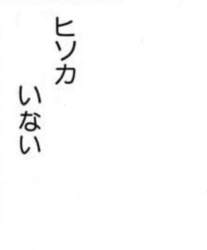 ヒソカ
いない